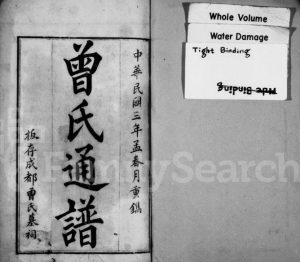 中華民國三年孟春月重鐫
曾氏通譜
板存成都曾氏墓祠
Whole Volume
Water Damage
Tight Binding
Wide Binding
FamilySearch